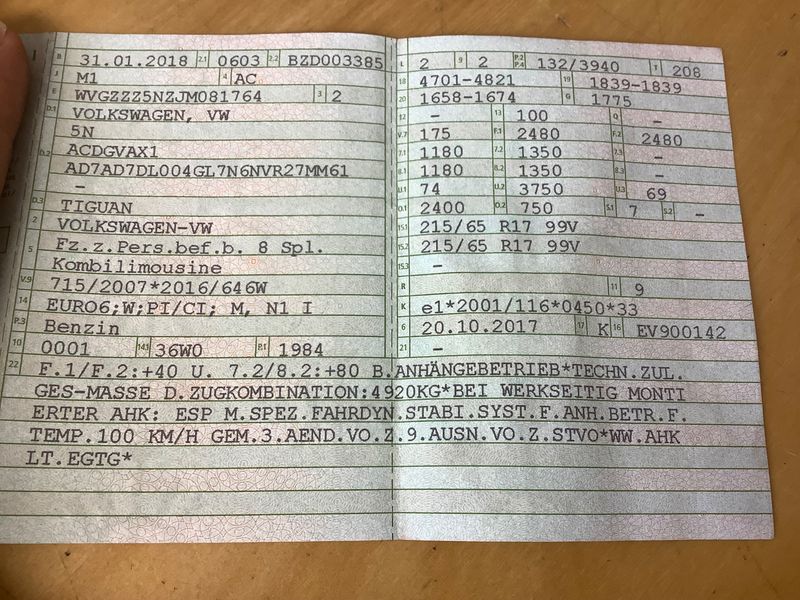 B 31.01.2018 2.1 0603 2.2 BZD003385
J M1 4 AC
E WVGZZZ5NZJM081764 3 2
D.1 VOLKSWAGEN, VW
5N
D.2 ACDGVAX1
AD7AD7DL004GL7N6NVR27MM61
-
D.3 TIGUAN
2 VOLKSWAGEN-VW
5 Fz.z.Pers.bef.b. 8 Spl.
Kombilimousine
V.9 715/2007*2016/646W
14 EURO6;W;PI/CI; M, N1 I
P.3 Benzin
10 0001 14.1 36W0 P.1 1984
L 2 9 2 P.2 P.4 132/3940 T 208
18 4701-4821 19 1839-1839
20 1658-1674 G 1775
12 - 13 100 Q -
V.7 175 F.1 2480 F.2 2480
7.1 1180 7.2 1350 7.3 -
8.1 1180 8.2 1350 8.3 -
U.1 74 U.2 3750 U.3 69
O.1 2400 O.2 750 S.1 7 S.2 -
15.1 215/65 R17 99V
15.2 215/65 R17 99V
15.3 -
R 11 9
K e1*2001/116*0450*33
6 20.10.2017 17 K 16 EV900142
21 -
22 F.1/F.2:+40 U. 7.2/8.2:+80 B.ANHÄNGEBETRIEB*TECHN.ZUL.
GES-MASSE D.ZUGKOMBINATION:4920KG*BEI WERKSEITIG MONTI
ERTER AHK: ESP M.SPEZ.FAHRDYN.STABI.SYST.F.ANH.BETR.F.
TEMP.100 KM/H GEM.3.AEND.VO.Z.9.AUSN.VO.Z.STVO*WW.AHK
LT.EGTG*